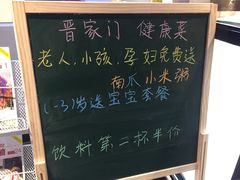 晋家门 健康菜
老人、小孩、孕妇免费送
南瓜小米粥
(1-3)岁送宝宝套餐
饮料第二杯半价